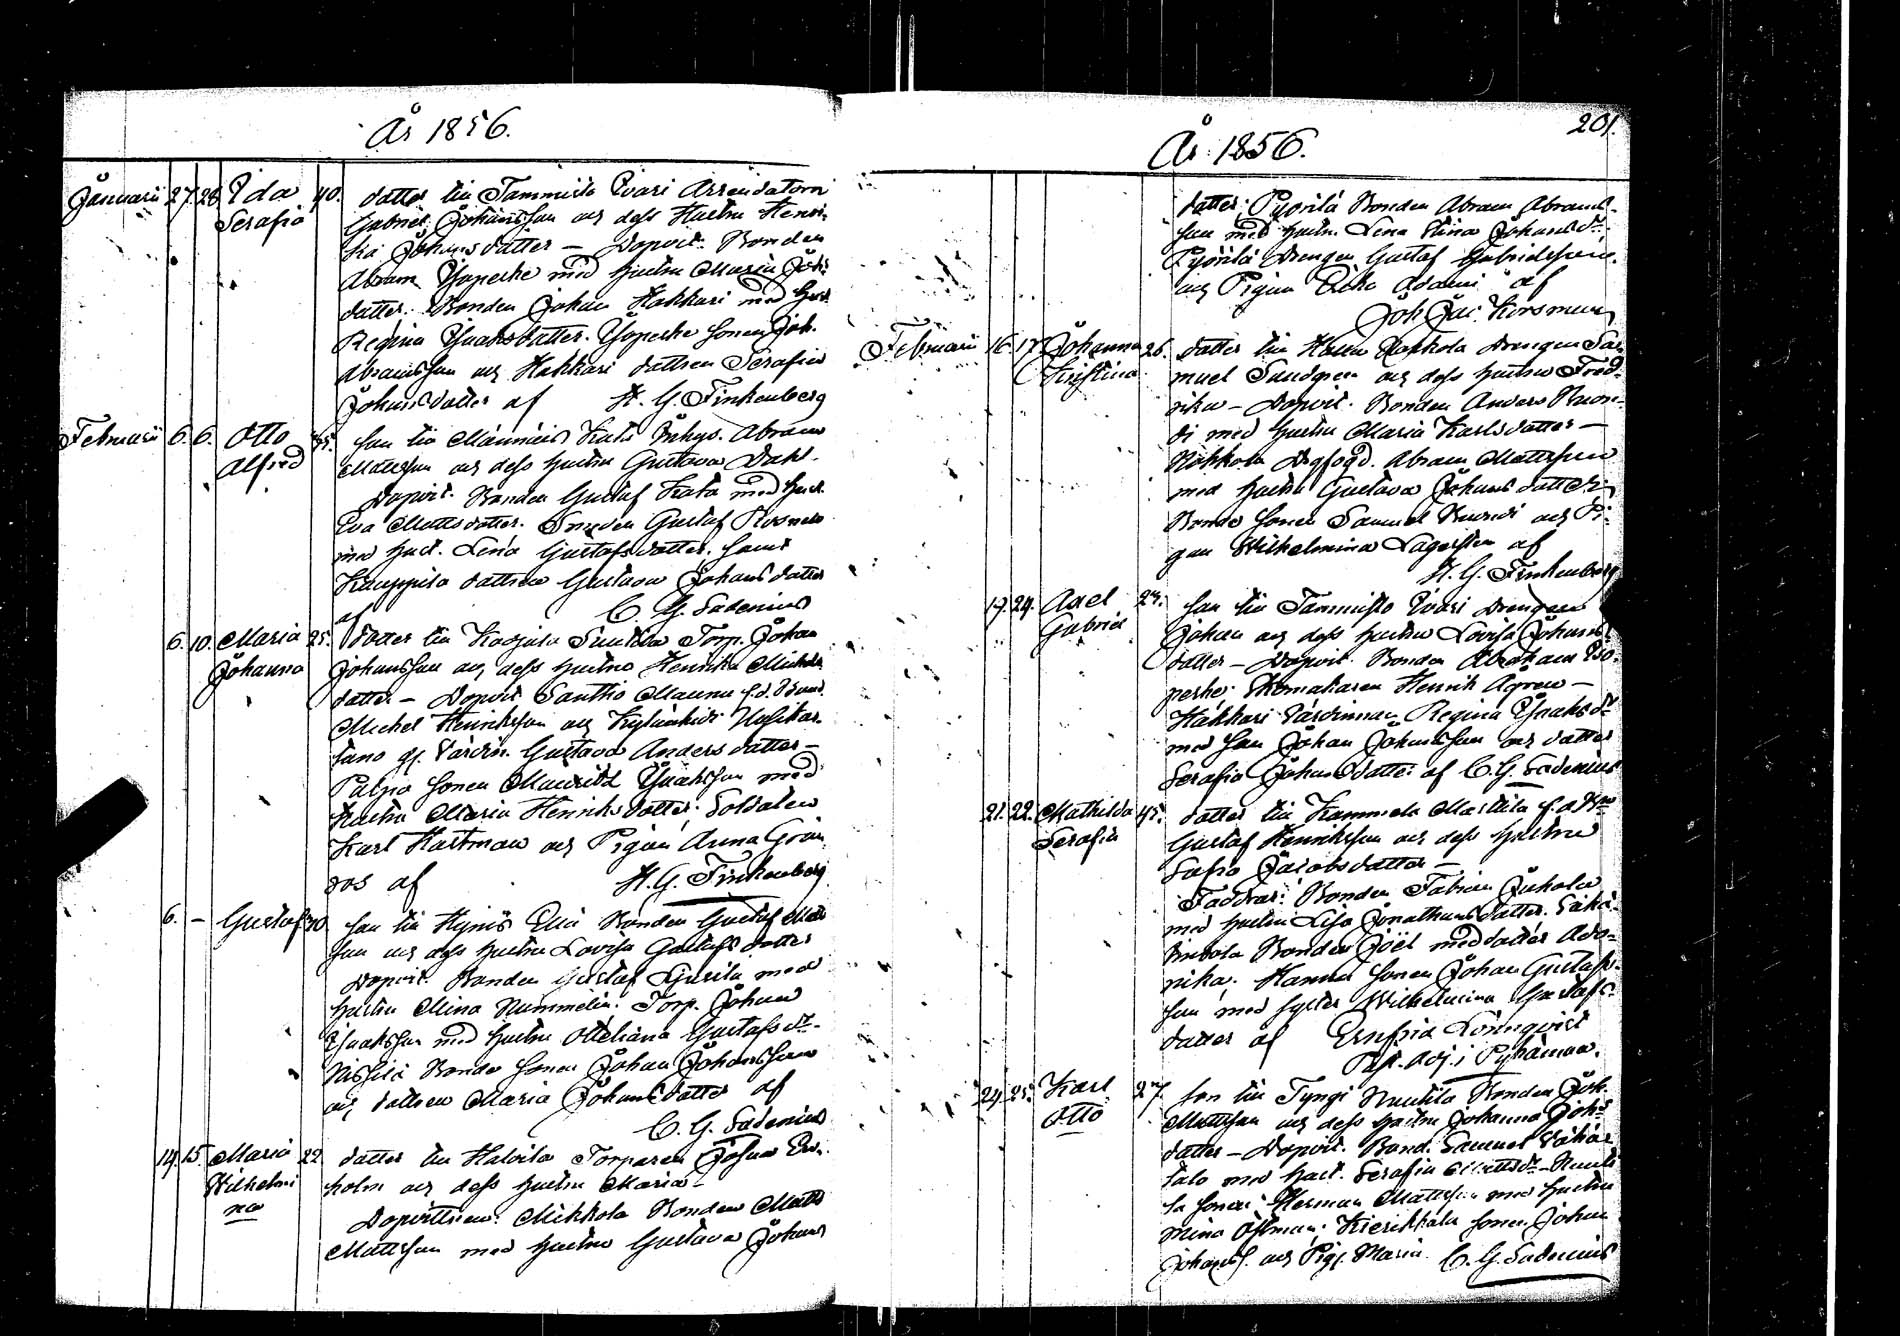 År 1856.
Januarii 27. 28. Ida 40. dotter till Tammisto Ivari Arrendatorn
Serafia Gabriel Johansson och dess Hustru Henri-
ka Johansdotter – Dopvit. Bonden
Abram Isoperhe med hustru Maria Joh:
dotter. Bonden Johan Hakkari med hust
Regina Isaksdotter. Isoperhe sonen Joh.
Abramsson och Hakkari dottren Serafia
Johansdotter af H. G. Finkenberg
Februarii 6. 6. Otto son till Männäis Kata Inhys. Abram
Alfred Mattsson och dess hustru Gustava Dahl.
Dopvit. Bonden Gustaf Kata med hust
Eva Mattsdotter. Smeden Gustaf Rosnell
med hust. Lena Gustafsdotter. samt
Kauppila dottren Gustava Johansdotter
af C. G. Sadenius
6. 10. Maria 25. dotter till Torp. Johan
Johanna Johansson och dess hustru Henrika Michels
dotter – Dopvit Santtio Maunu f.d. Bond.
Michel Henriksson och Uusikar-
tano gl. Värdin. Gustava Andersdotter –
sonen Mauritz Isaksson med
Hustru Maria Henriksdotter. Soldaten
Karl Hartman och Pigan Anna Grön
roos af H. G. Finkenberg
6. – Gustaf 30 son till Hymis Eliä Bonden Gustaf Mats
son och dess hustru Lovisa Gustafsdotter
Dopvit. Bonden Gustaf med
hustru Mina Nummelin. Torp. Johan
Isaksson med hustru Ottiliana Gustafsdr.
Bonde sonen Johan Johansson
och dottren Maria Johansdotter af
C. G. Sadenius
14. 15. Maria 22 dotter till Torparen
Wilhelmi holm och dess hustru Maria –
na Dopvittnen: Mikkola Bonden Matts
Mattsson med hustru Gustava Johans
201.
År 1856.
dotter. Pyörilä Bonden Abram Abrams-
son med hustru Lena Stina Johansdr.
Pyörilä Drengen Gustaf Gabrielsson
och Pigan Erika Adami af
Joh Jac. Korsman
Februarii 16. 17. Johanna 26. dotter till Drengen Sa-
Kristina muel Sundgren och dess hustru Fred-
rika – Dopvit. Bonden Anders Ruon-
di med hustru Maria Karlsdotter –
Abram Mattsson
med hustru Gustava Johansdotter.
Bonde sonen Samuel och Pi-
gan Wilhelmina Lagersten af
H. G. Finkenberg
17. 24. Axel son till Tammisto Ivari Drengen
Gabriel Johan och dess hustru Lovisa Johans-
dotter – Dopvit. Bonden Abraham Iso-
perhe. Skomakaren Henrik Agren –
Hakkari Värdinnan Regina Isaksdr
med son Johan Johansson och dotter
Serafia Johansdotter af C. G. Sadenius
21. 22. Mathilda 45. dotter till Kammela Marttila f.d. Bn
Serafia Gustaf Henriksson och dess hustru
Sofia Jacobsdotter –
Faddrar: Bonden Fabian Juhola
med hustru Lisa Jonathansdotter.
Bonden Joël med dotter Ado-
rika. Hannu sonen Johan Gustafs-
son med syster Wilhelmina Gustafs-
dotter af Lönnqvist
Past. Adj. i Pyhämaa.
24. 25. Karl 27. son till Tyngi Bonden Joh.
Otto Mattsson och dess hustru Johanna Johs
dotter – Dopvit. Bond. Samuel Vähä-
talo med hust. Serafia Mattsdr –
sonen Herman Mattsson med hustru
Mina Kierikkala sonen Johan
Johanss. och Pig. Maria. C. G. Sadenius